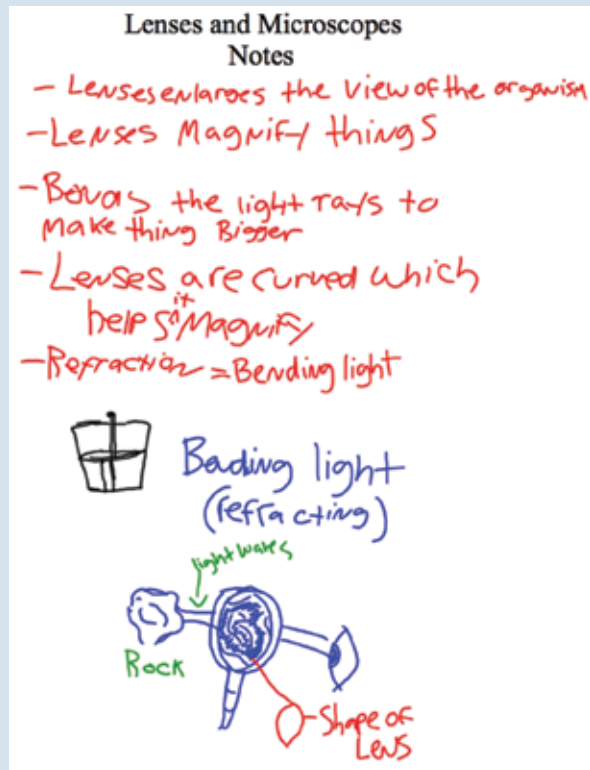 Lenses and Microscopes
Notes
- Lenses enlarges the view of the organism
- Lenses Magnify things
- Bends the light rays to
make thing Bigger
- Lenses are curved which
helps it Magnify
- Refraction = Bending light
Bending light
(refracting)
light waves
Rock
Shape of
Lens